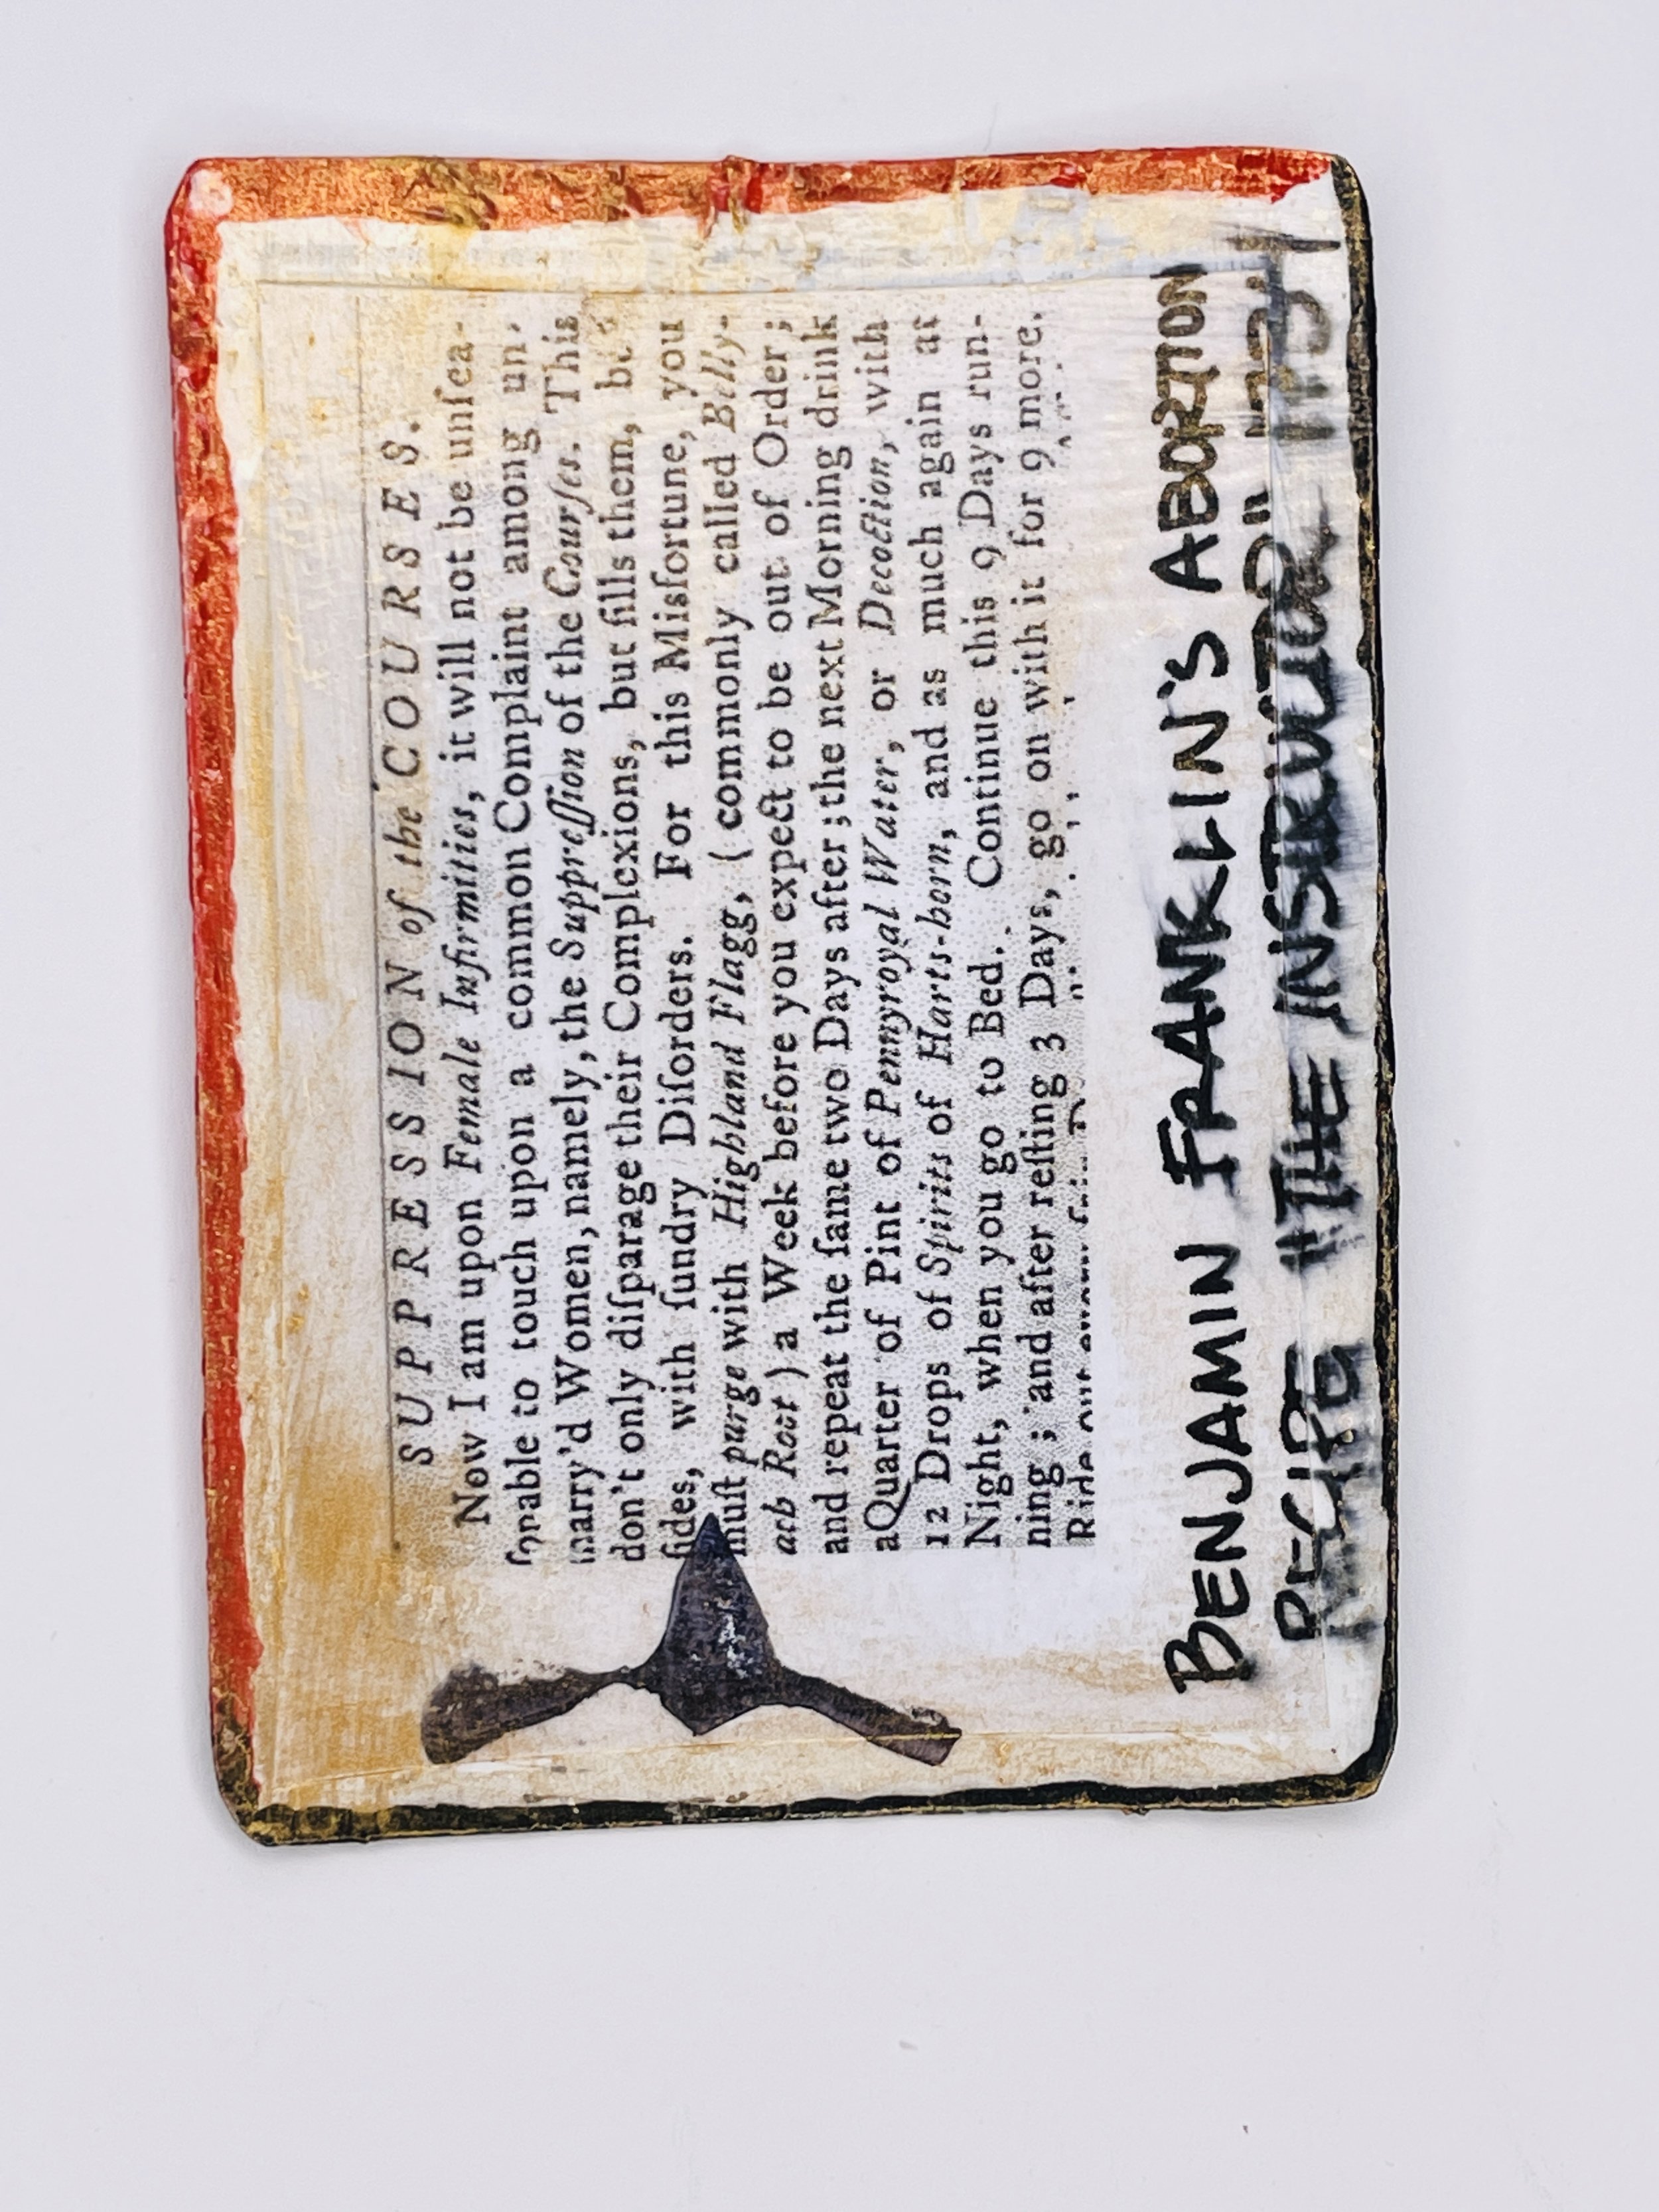 SUPPRESSION of the COURSES.
Now I am upon Female Infirmities, it will not be unſea-
ſonable to touch upon a common Complaint among un-
marry'd Women, namely, the Suppreſſion of the Courſes. This
don't only diſparage their Complexions, but fills them, be-
ſides, with ſundry Diſorders. For this Misfortune, you
muſt purge with Highland Flagg, (commonly called Belly-
ach Root) a Week before you expect to be out of Order;
and repeat the ſame two Days after; the next Morning drink
a Quarter of Pint of Pennyroyal Water, or Decoction, with
12 Drops of Spirits of Harts-horn, and as much again at
Night, when you go to Bed. Continue this 9 Days run-
ning; and after reſting 3 Days, go on with it for 9 more.
BENJAMIN FRANKLIN'S ABORTION
RECIPE "THE INSTRUCTOR"